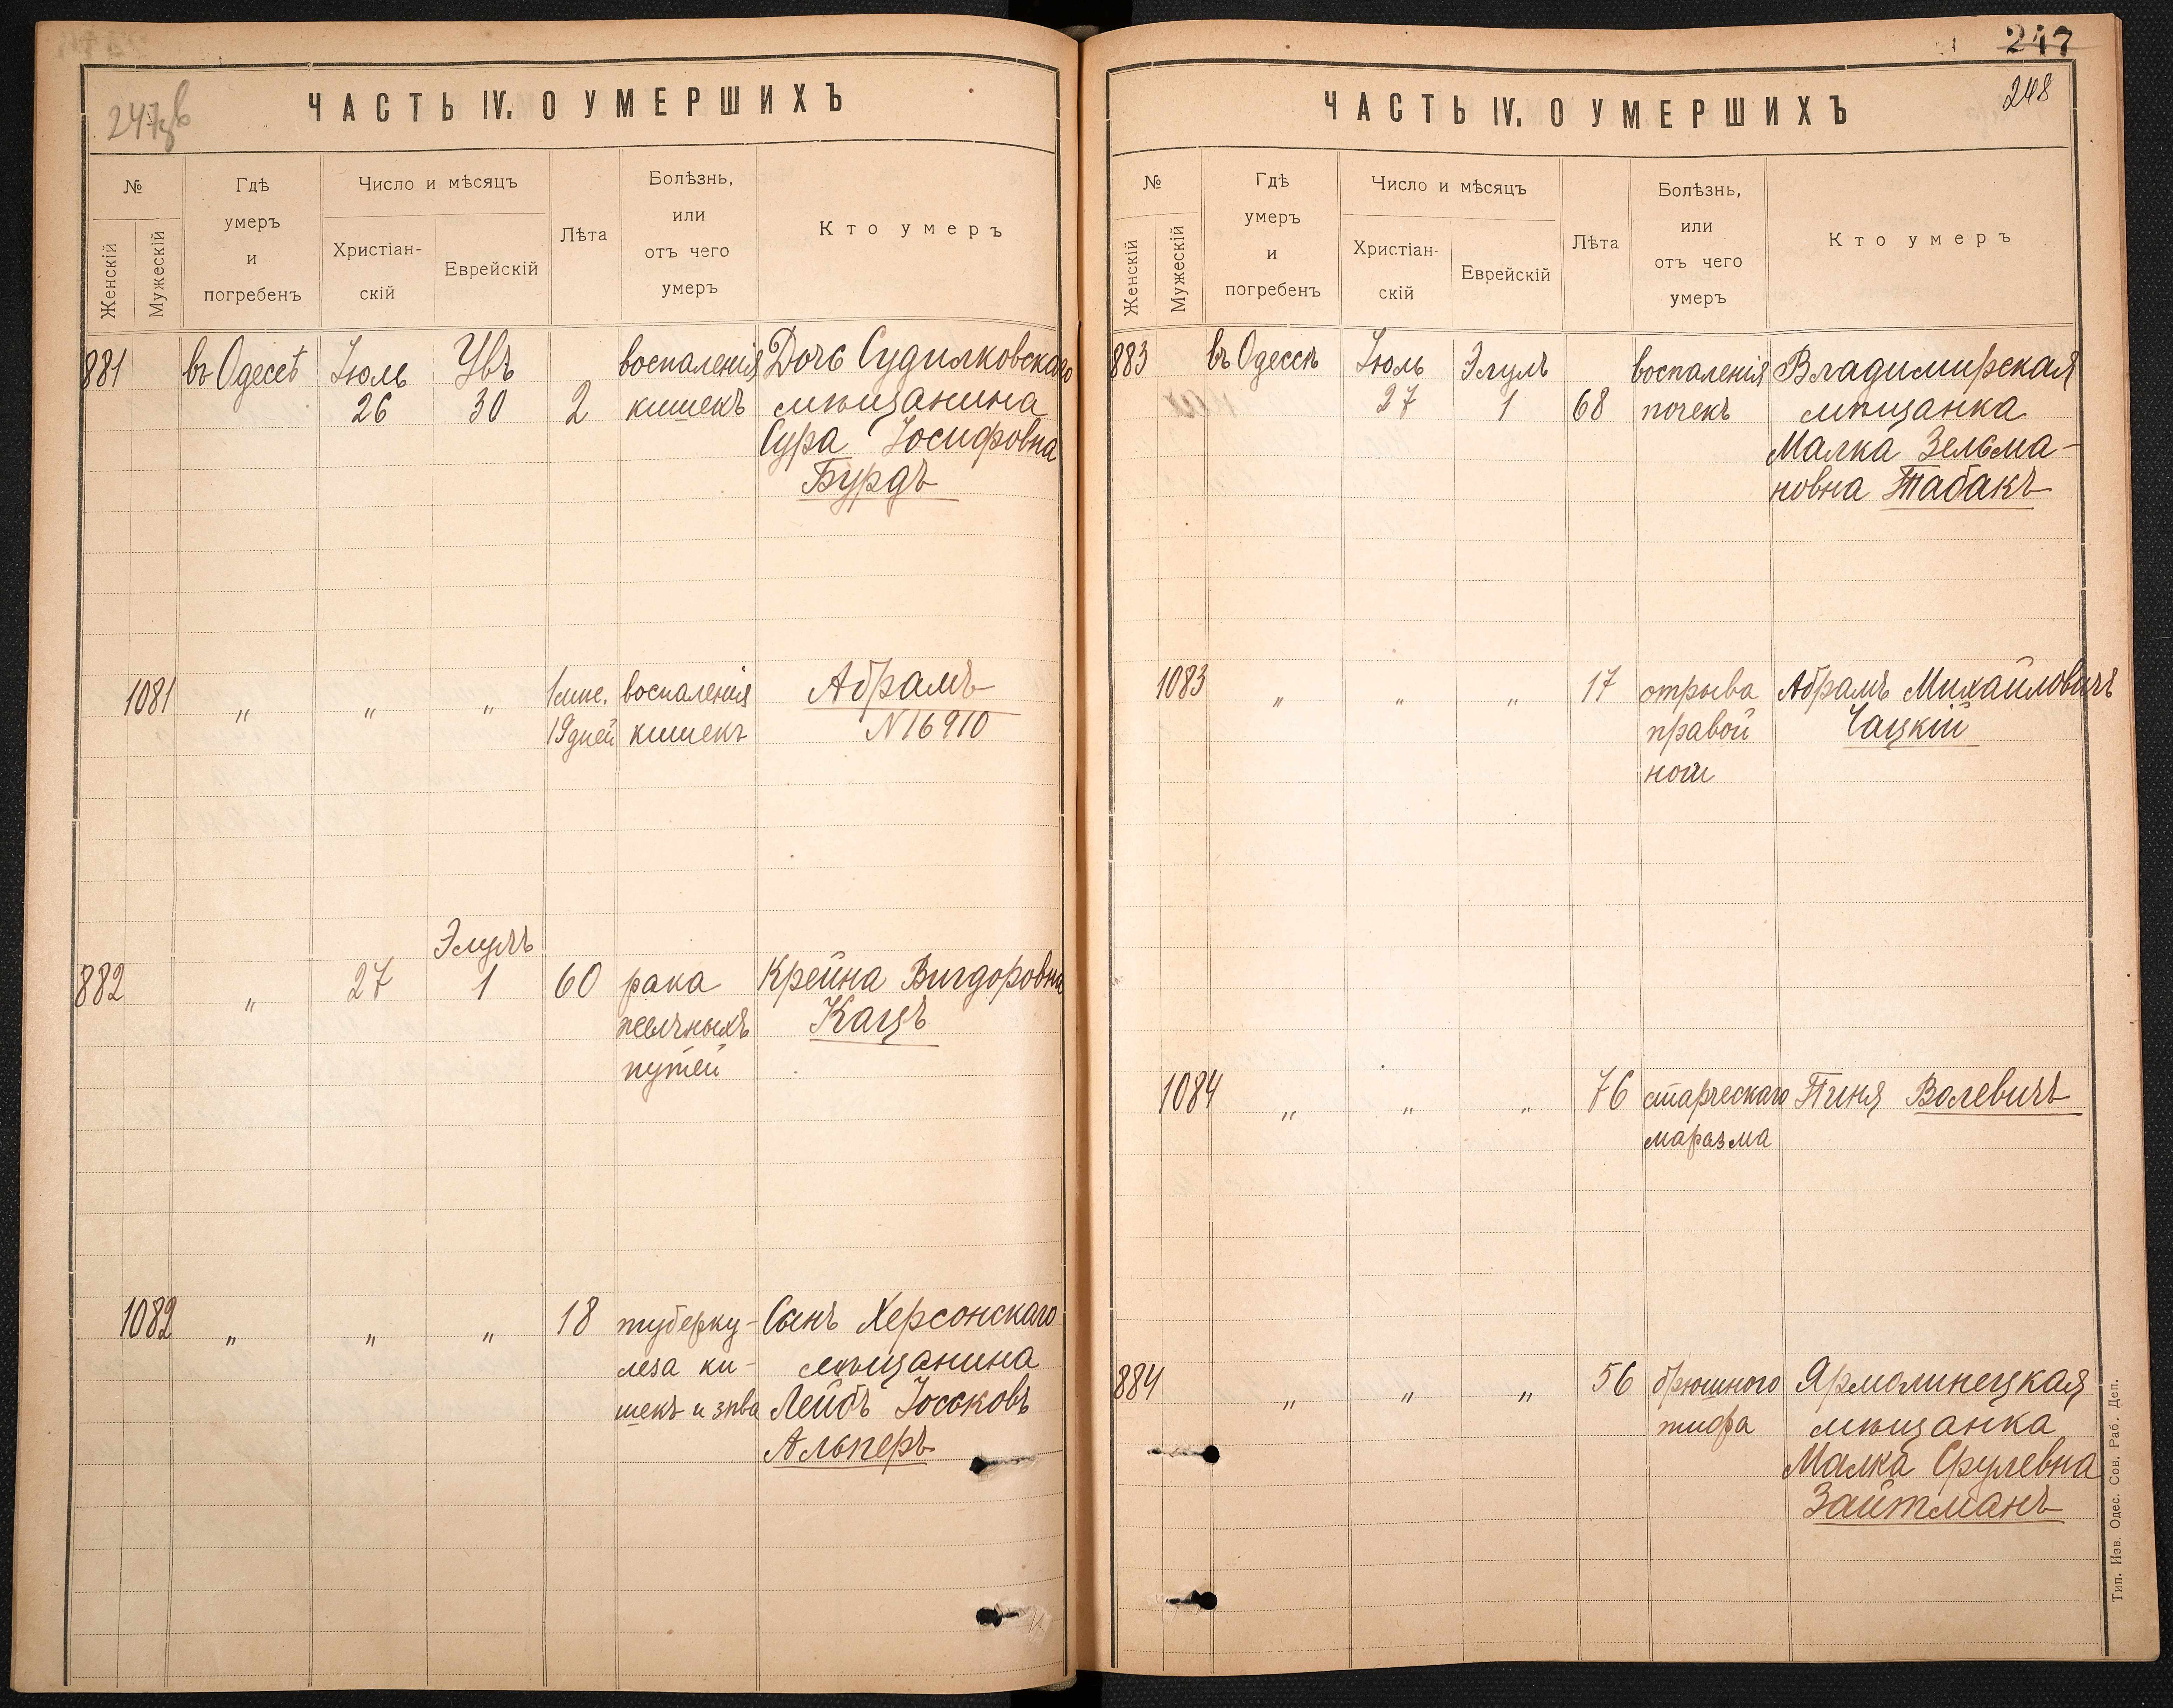 247
247 зв
ЧАСТЬ IV. О УМЕРШИХЪ
№
Женскій
Мужескій
Гдѣ
умеръ
и
погребенъ
Число и мѣсяцъ
Христіан-
скій
Еврейскій
Лѣта
Болѣзнь,
или
отъ чего
умеръ
Кто умеръ
881 въ Одессѣ Іюль Увъ воспаленія Дочь Судилковскаго
26 30 2 кишекъ мѣщанина
Сура Іосифовна
Бурдъ
1081 " " " 1 мис. воспаленія Абрамъ
19 дней кишекъ N 16910
Элулъ
882 " 27 1 60 рака Крейна Вигдоровна
желчныхъ Кацъ
путей
1082 " " " 18 туберку- Сынъ Херсонскаго
леза ки- мѣщанина
шекъ и зѣва Лейбъ Іоськовъ
Альперъ
248
ЧАСТЬ IV. О УМЕРШИХЪ
№
Женскій
Мужескій
Гдѣ
умеръ
и
погребенъ
Число и мѣсяцъ
Христіан-
скій
Еврейскій
Лѣта
Болѣзнь,
или
отъ чего
умеръ
Кто умеръ
883 въ Одессѣ Іюль Элулъ воспаленія Владимирская
27 1 68 почекъ мѣщанка
Малка Зельма-
новна Табакъ
1083 " " " 17 отрыва Абрамъ Михайловичъ
правой Чацкій
ноги
1084 " " " 76 старческаго Пиня Волевичъ
маразма
884 " " " 56 брюшного Ярмолинецкая
тифа мѣщанка
Малка Срулевна
Зайтманъ
Тип. Изв. Одес. Сов. Раб. Деп.